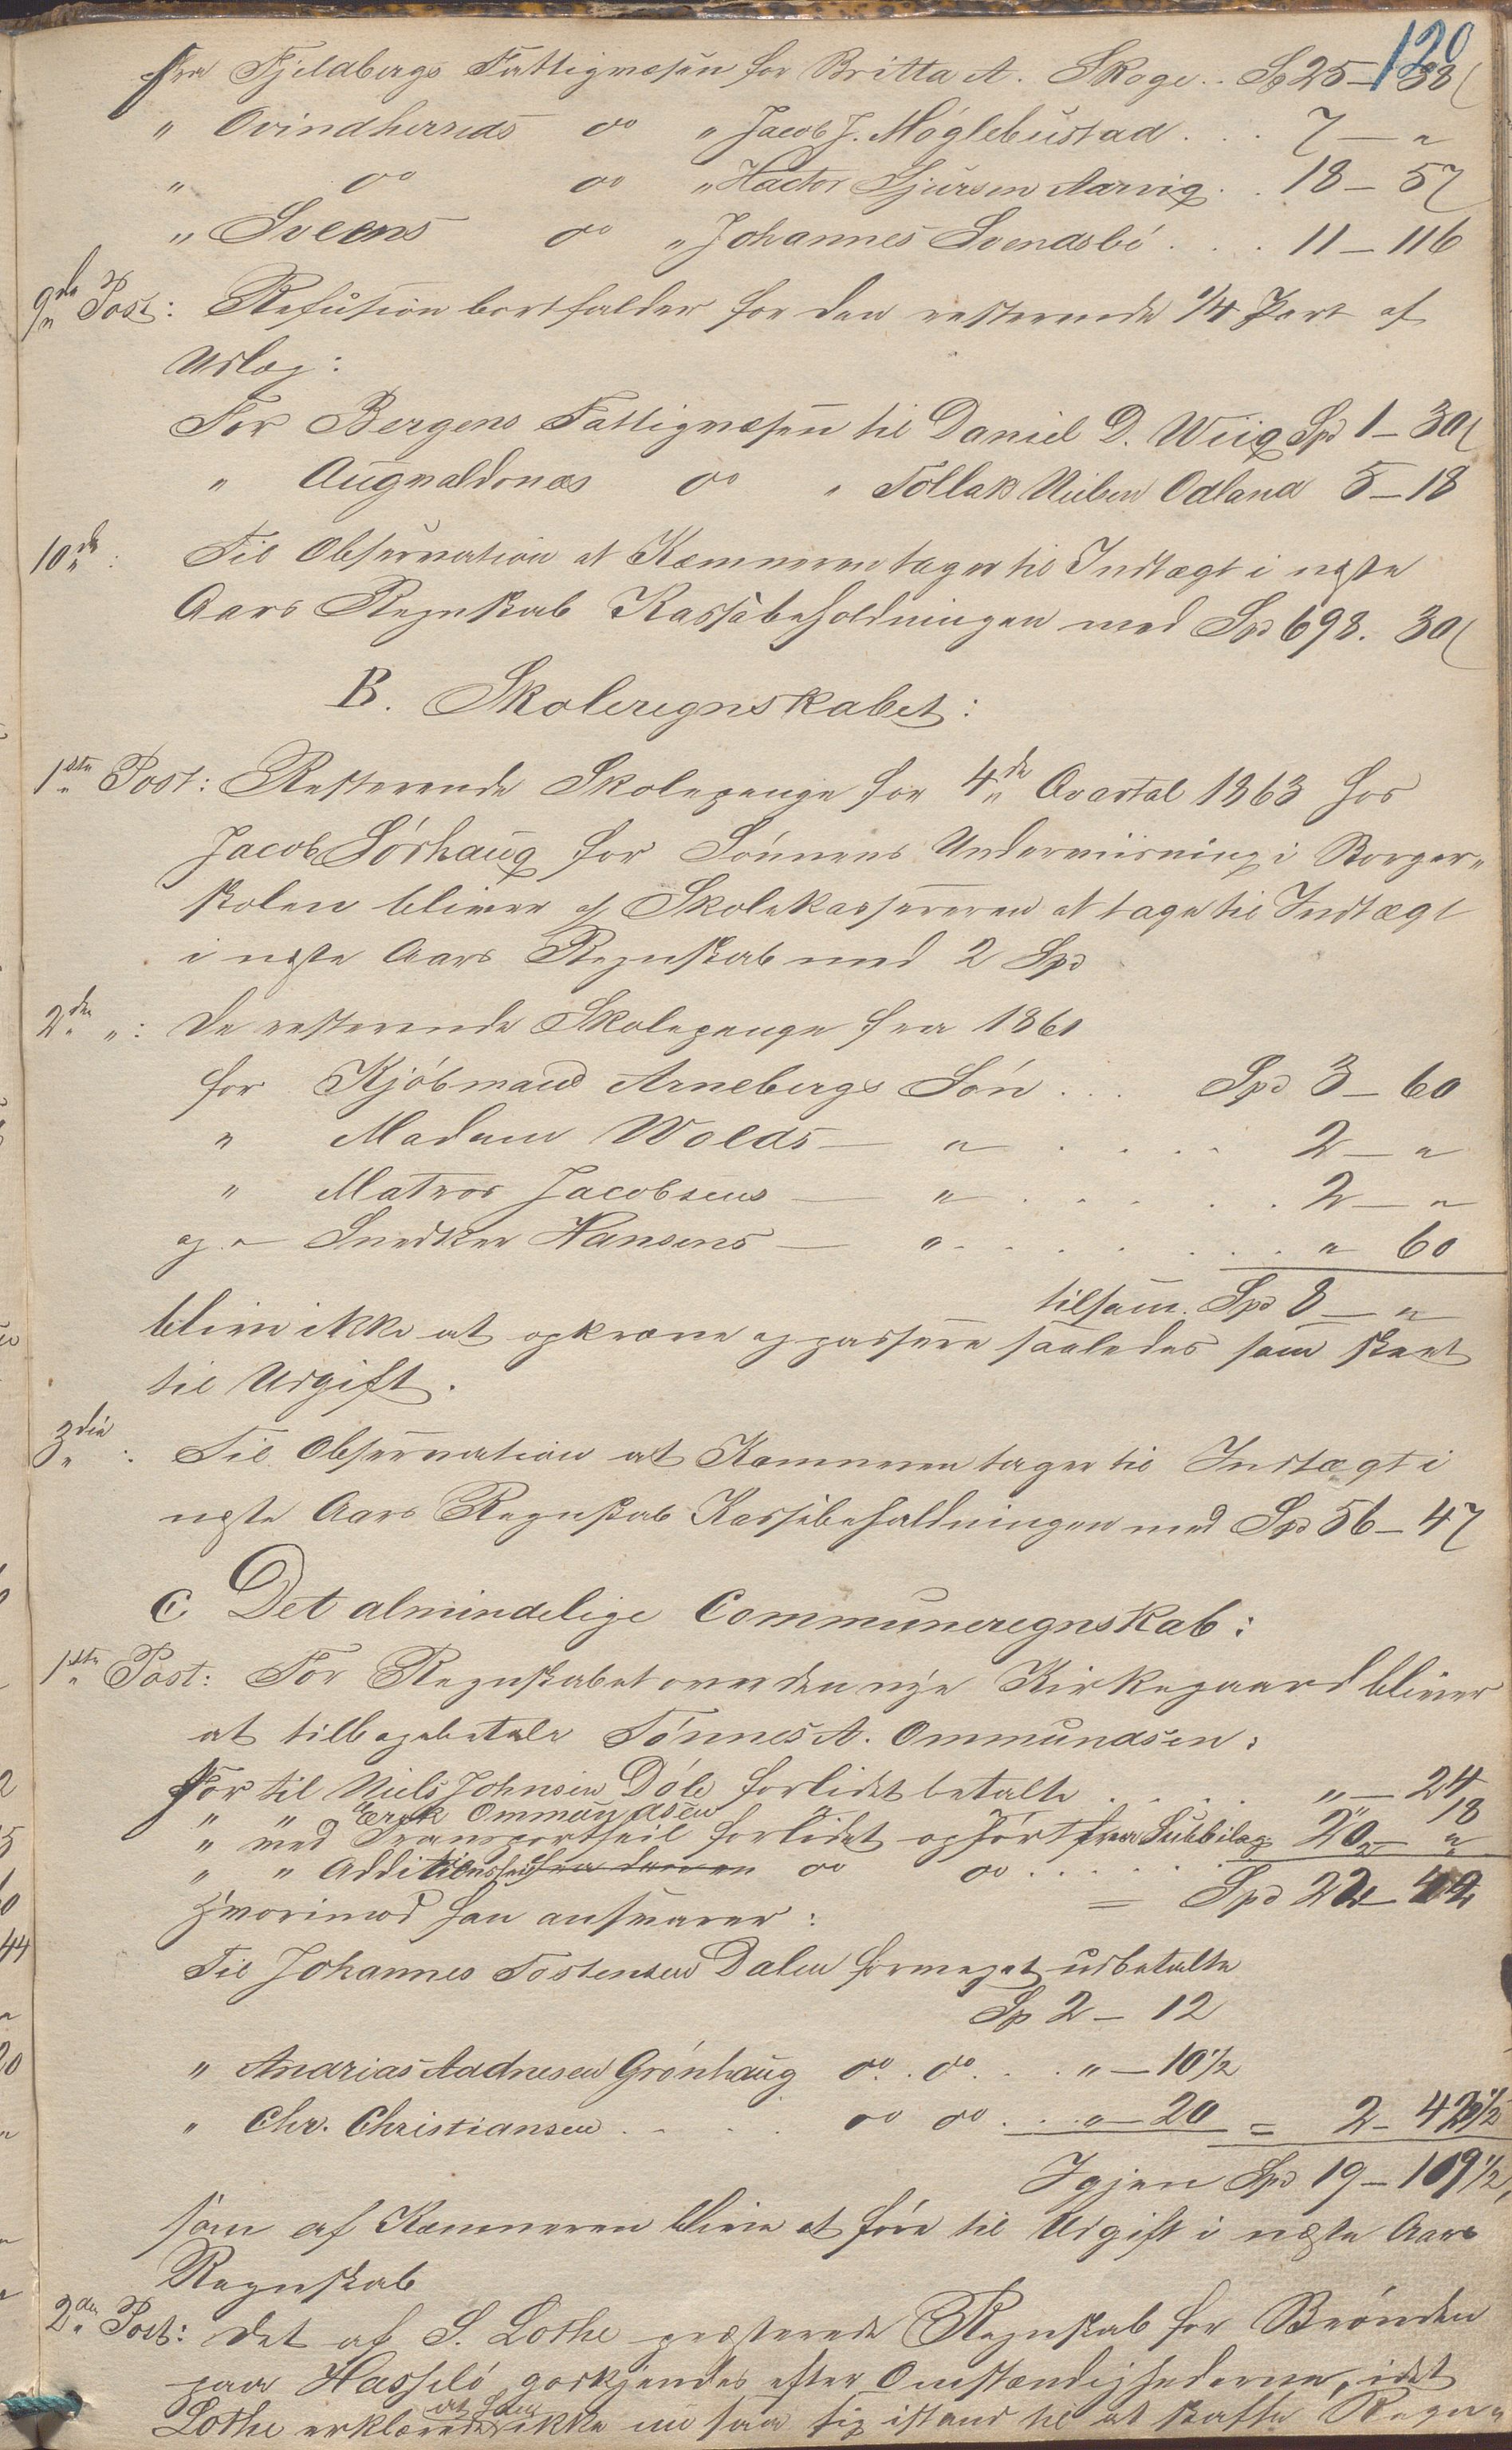 120
Fra Fjeldbergs Fattigvæsen for Britta A. Skoge .. Sp 25 – 38
" Qvindherreds do " Jacob J. Møglebustad . . . 7 – "
" do do " Hactor Sjursen Aarvig . . 18 – 57
" Sveens do " Johannes Svendsbø . . . 11 – 116
9de Post: Refusion bortfalder for den resterende 1/4 Part af
Udlæg:
For Bergens Fattigvæsen til Daniel D. Wiig Spd 1 – 30
" Augvaldsnæs do " Tollak Nielsen Odland 5 – 18
10de : Til Observation at Kæmneren tager til Indtægt i neste
Aars Regnskab Kassebeholdningen med Spd 698. 30
B. Skoleregnskabet:
1ste Post: Resterende Skolepenge for 4de Qvartal 1863 hos
Jacob Sørhaug for Sønnens Underviisning i Borger-
skolen bliver af Skolekassereren at tage til Indtægt
i neste Aars Regnskab med 2 Spd
2den " : De resterende Skolepenge fra 1861
for Kjøbmand Arnebergs Søn . . . Spd 3 – 60
" Madam Wolds – " . . . . 2 – "
" Matros Jacobsens – " . . . . 2 – "
og " Snedker Hansens – " . . . . . " 60
tilsam. Spd 8 – "
blive ikke at opkræve og passere saaledes som skeet
til Udgift.
3die : Til Observation at Kæmneren tager til Indtægt i
neste Aars Regnskab Kassebeholdningen med Spd 56 – 47
C Det almindelige Communeregnskab:
1ste Post: For Regnskabet over den nye Kirkegaard bliver
at tilbagebetale Tønnes A. Ommundsen:
For til Niels Johnsen Døle forlidet betalte . . . . " – 24
" " Erik Ommundsen " " 18
" med Transportfeil forlidet opført fra Subbilag 20 – "
" " Additionsfeil do do . . . . .
= Spd 22 – 42
Hvorimod han ansvarer:
Til Johannes Tostensen Dalen formeget udbetalte
Sp 2 – 12
" Andrias Aadnesen Grønhaug do . do . . . " – 10 1/2
" Chr. Christiansen . . . . do do . . . " – 20 = 2 – 42 1/2
Igjen Spd 19 – 119 1/2,
som af Kæmneren blive at føre til Udgift i næste Aars
Regnskab
2den Post: Det af S. Lothe præsterede Regnskab for Brønden
paa Hasselø godkjendes efter Omstændighederne, idet
Lothe erklærede at han ikke nu saa sig istand til at skaffe Regn-